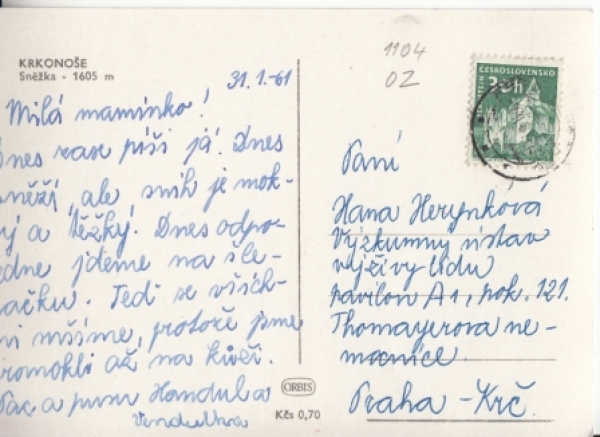 KRKONOŠE
Sněžka - 1605 m
31.1.-61
Milá maminko!
Dnes zase píši já. Dnes
sněží, ale sníh je mok-
rý a těžký. Dnes odpo-
ledne jdeme na šle-
hačku. Teď se všich-
ni mšíme, protože jsme
promokli až na kůži.
Pac a pusu Handula
Vendulka
ORBIS
Kčs 0,70
1104
OZ
ČESKOSLOVENSKO
Paní
Hana Herynková
Výzkumný ústav
výživy lidu
pavilon A1, pok. 121.
Thomayerova ne-
mocnice.
Praha - Krč.